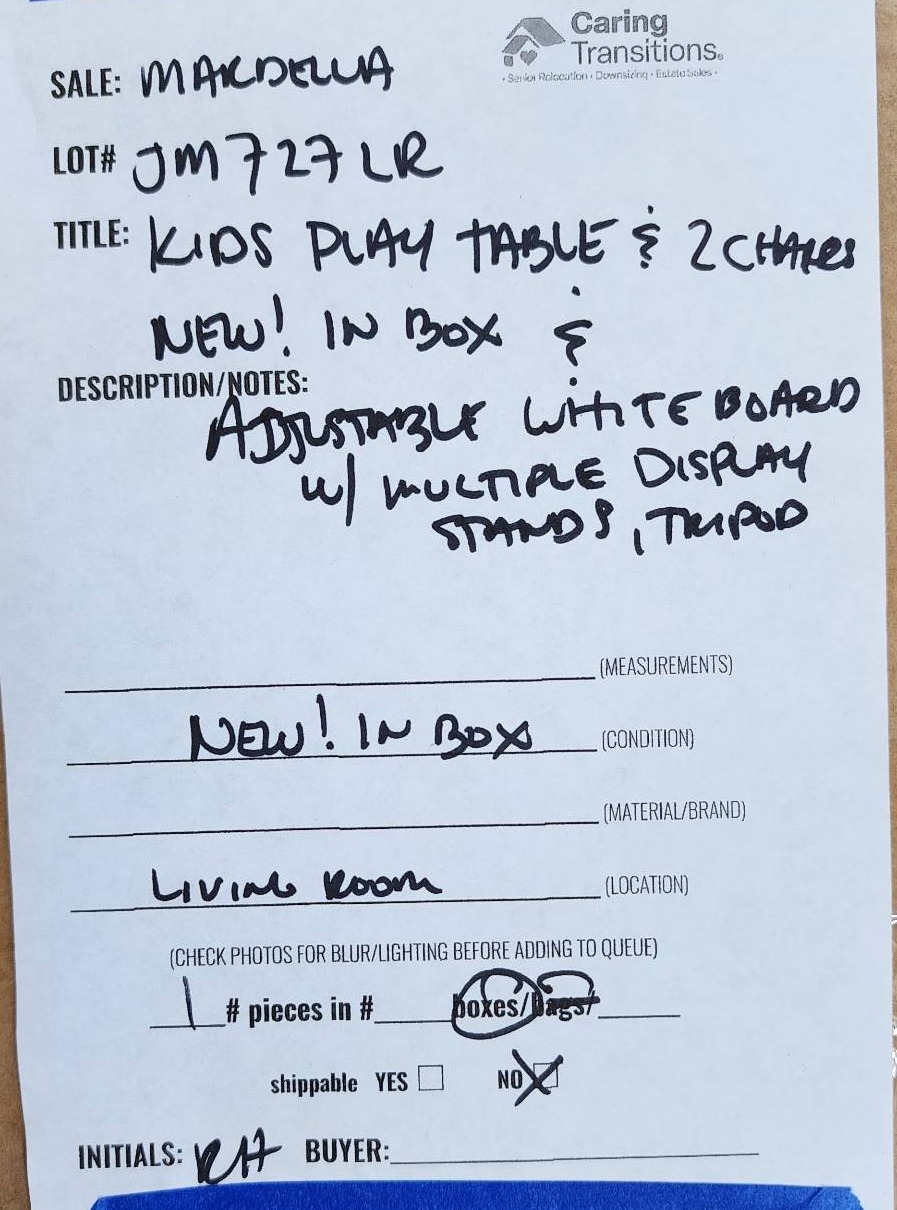 Caring
Transitions®
• Senior Relocation • Downsizing • Estate Sales •
SALE: MARDELLA
LOT# JM727LR
TITLE: KIDS PLAY TABLE & 2 CHAIRS
NEW! IN BOX &
DESCRIPTION/NOTES:
ADJUSTABLE WHITE BOARD
W/ MULTIPLE DISPLAY
STANDS, TRIPOD
(MEASUREMENTS)
NEW! IN BOX (CONDITION)
(MATERIAL/BRAND)
LIVING ROOM (LOCATION)
(CHECK PHOTOS FOR BLUR/LIGHTING BEFORE ADDING TO QUEUE)
1 # pieces in # boxes/bags/
shippable YES NO X
INITIALS: RH BUYER: